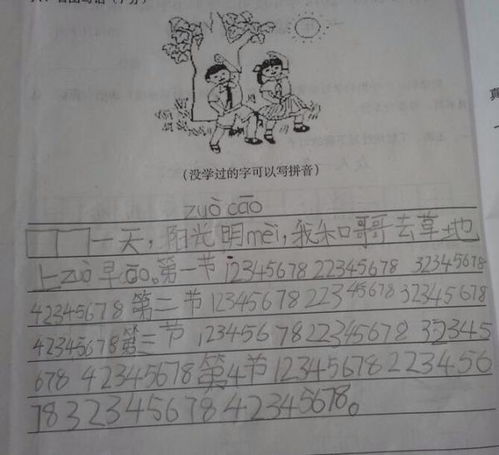 看图写话（7分）
（没学过的字可以写拼音）
zuò cāo
一天，阳光明mèi，我和哥哥去草地
上zuò早cāo。第一节 12345678 22345678 32345678
42345678 第二节 12345678 22345678 32345678
42345678 第三节 12345678 22345678 32345
678 42345678 第4节 12345678 223456
78 32345678 42345678。